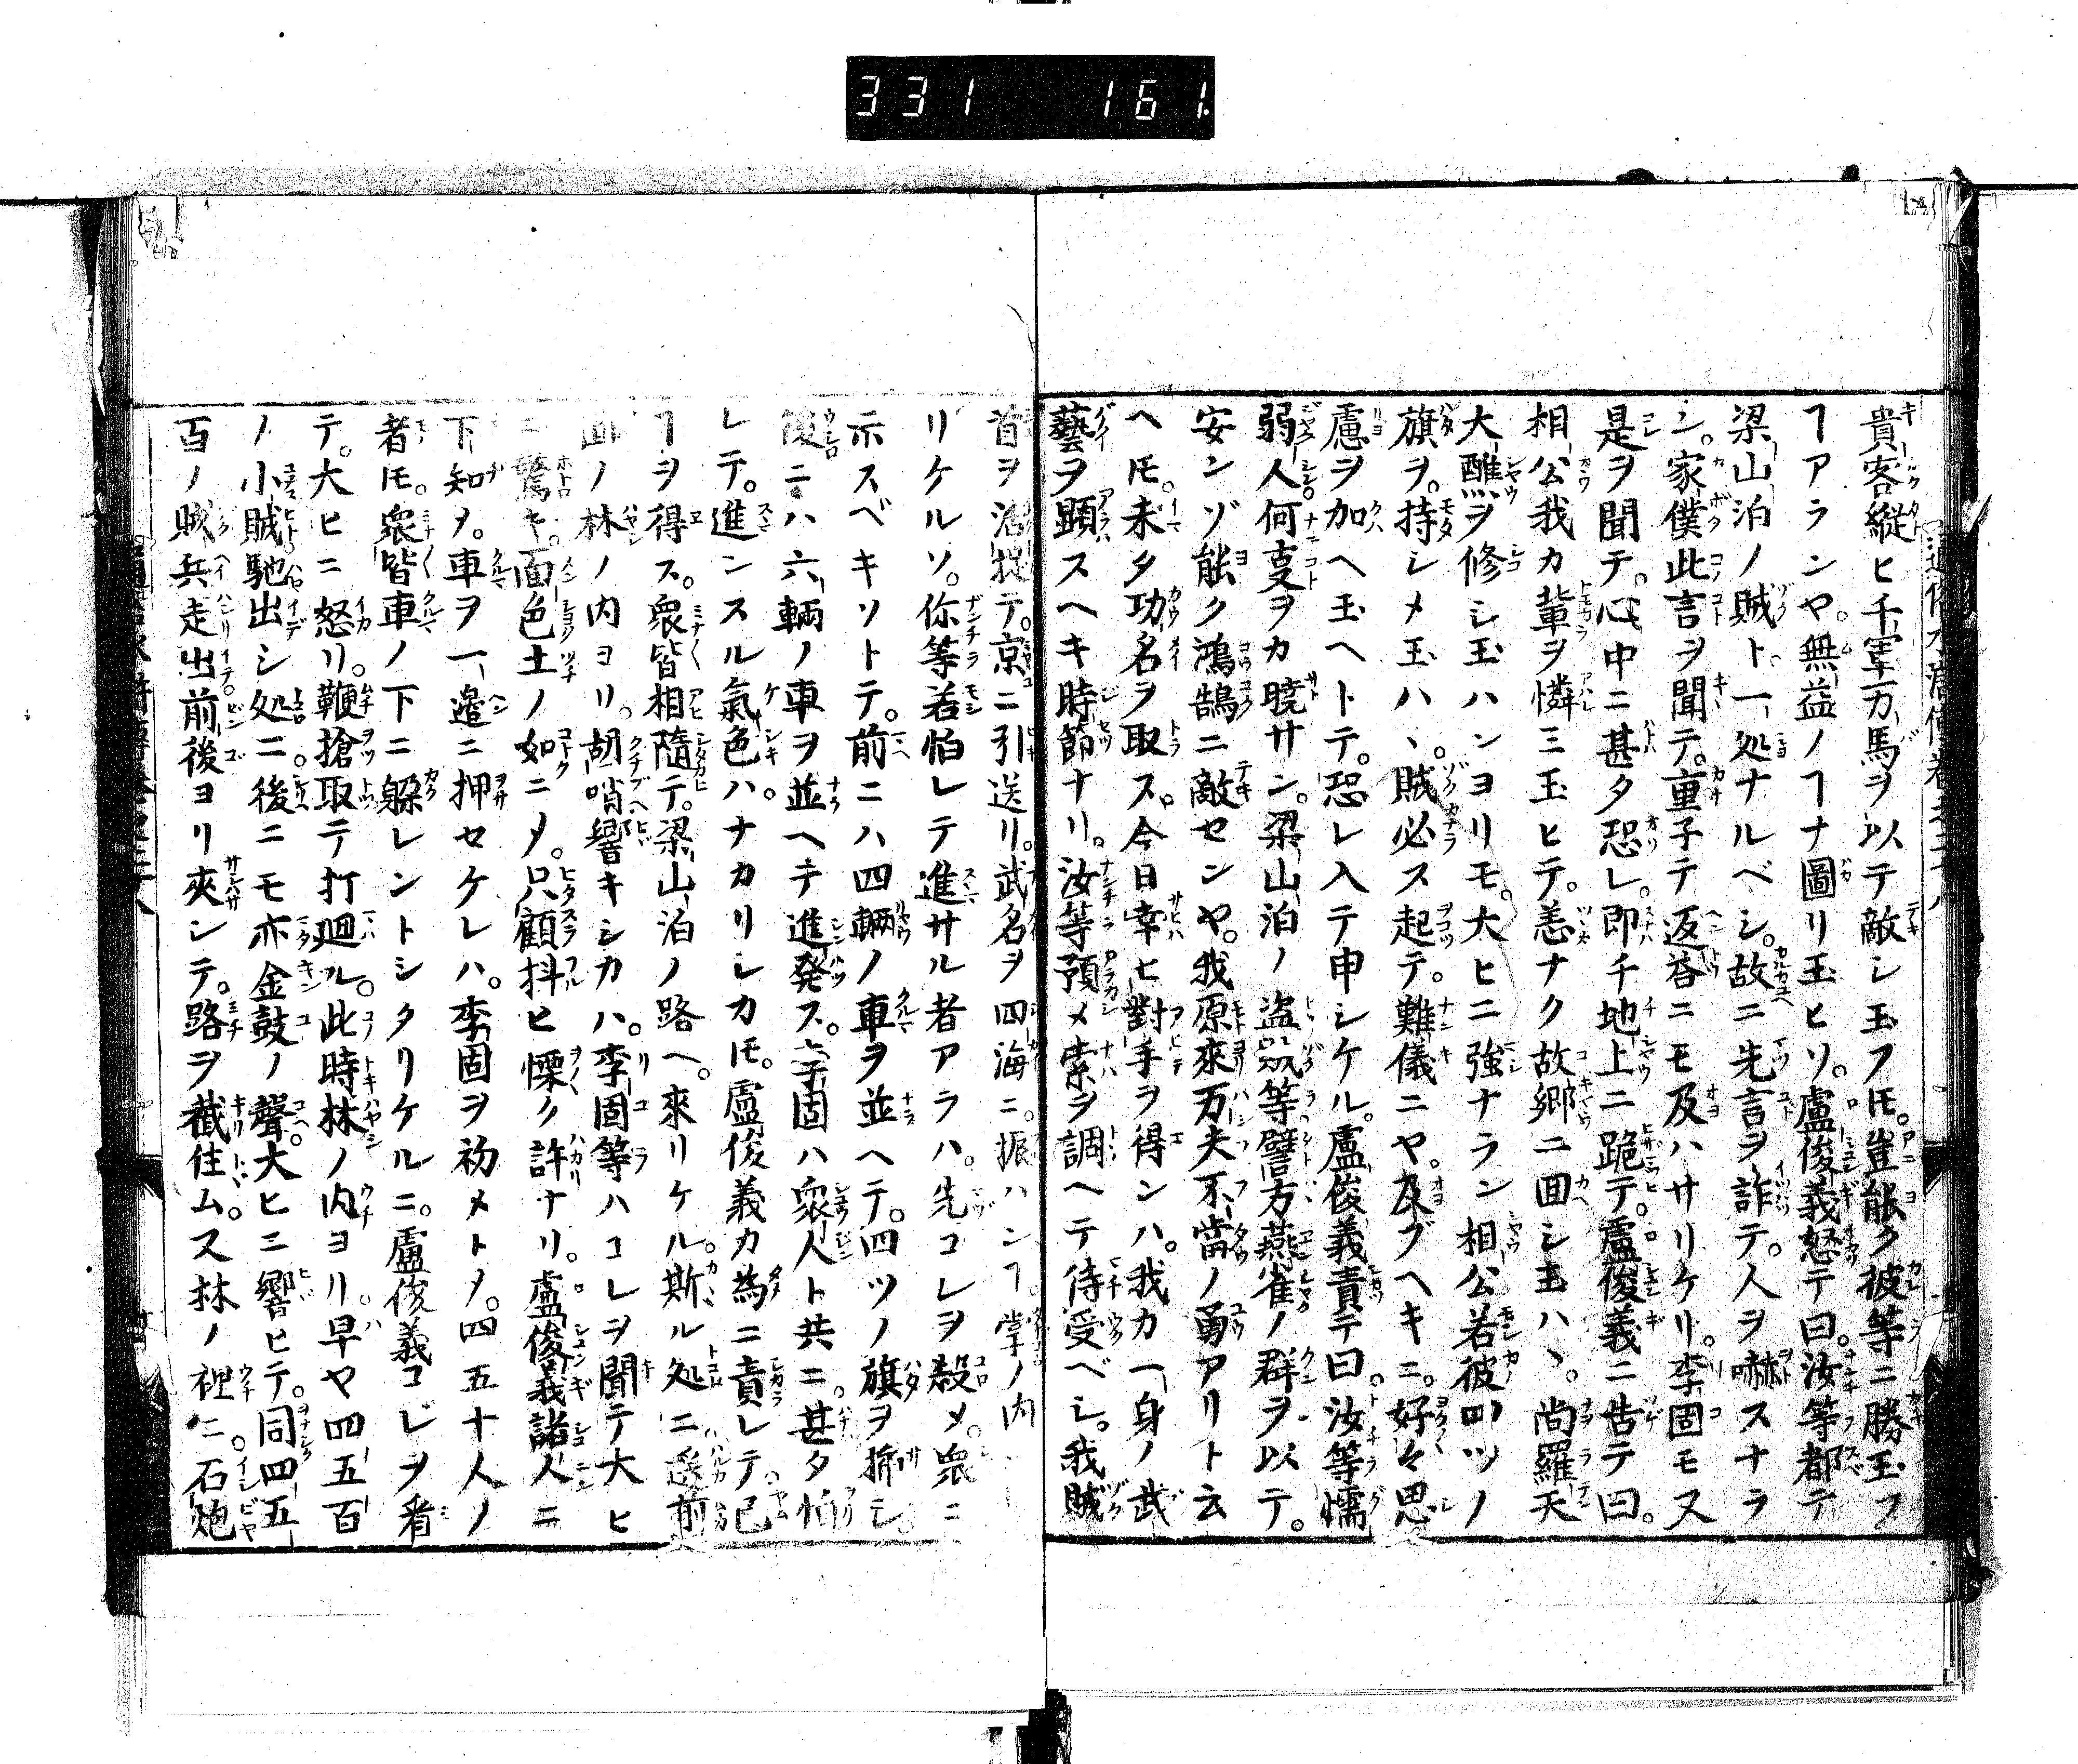 331 161.
貴客縦ヒ千軍万馬ヲ以テ敵シ玉フ𪜈。豈能ク彼等ニ勝玉フ
ヿアランヤ。無益ノヿナ圖リ玉ヒソ。盧俊義怒テ曰。汝等都テ
梁山泊ノ賊ト。一処ナルベシ。故ニ先言ヲ詐テ。人ヲ嚇スナラ
ン。家僕此言ヲ聞テ。重子テ返答ニモ及ハサリケリ。李固モ又
是ヲ聞テ。心中ニ甚タ恐レ。即チ地上ニ跪テ。盧俊義ニ告テ曰。
相公我カ輩ヲ憐ミ玉ヒテ。恙ナク故郷ニ回シ玉ハヽ。尚羅天
大醮ヲ修シ玉ハンヨリモ。大ヒニ強ナラン相公若彼四ツノ
旗ヲ。持シメ玉ハヽ。賊必ス起テ。難儀ニヤ。及ブヘキニ。好々思
慮ヲ加ヘ玉ヘトテ。恐レ入テ申シケル。盧俊義責テ曰。汝等懦
弱人何𠮷ヲカ暁サン。梁山泊ノ盗賊等譬方燕雀ノ群ヲ以テ。
安ンゾ能ク鴻鵠ニ敵センヤ。我原來万夫不當ノ勇アリト云
ヘ𪜈。未タ功名ヲ取ス。今日幸ヒ對手ヲ得ンハ。我カ一身ノ武
藝ヲ顕スヘキ時節ナリ。汝等預メ索ヲ調ヘテ待受ベシ。我賊
首ヲ活捉テ。京ニ引送リ。武名ヲ四海ニ。振ハンヿ。掌ノ内
リケルソ。你等若怕レテ進サル者アラハ。先コレヲ殺メ。衆ニ
示スベキソトテ。前ニハ四輛ノ車ヲ並ヘテ。四ツノ旗ヲ揷シ。
後ニハ六輛ノ車ヲ並ヘテ進発ス。李固ハ衆人ト共ニ。甚タ怕
レテ。進ンスル氣色ハ。ナカリシカ𪜈。盧俊義カ為ニ責レテ。已
ヿヲ得ス。衆皆相隨テ。梁山泊ノ路ヘ。來リケル。斯ル処ニ遥前
面ノ林ノ内ヨリ。胡哨響キシカハ。李固等ハコレヲ聞テ大ヒ
ニ驚キ。面色土ノ如ニメ。只顧抖ヒ慄ク許ナリ。盧俊義諸人ニ
下知メ。車ヲ一邉ニ押セケレハ。李固ヲ初メトメ。四五十人ノ
者𪜈。衆皆車ノ下ニ躱レントシタリケルニ。盧俊義コレヲ看
テ。大ヒニ怒リ。鞭搶取テ打廻ル。此時林ノ内ヨリ。早ヤ四五百
ノ小賊馳出シ処ニ。後ニモ亦金鼓ノ聲。大ヒニ響ヒテ。同四五
百ノ賊兵走出。前後ヨリ夾シテ。路ヲ截住ム。ス林ノ裡ニ。石炮